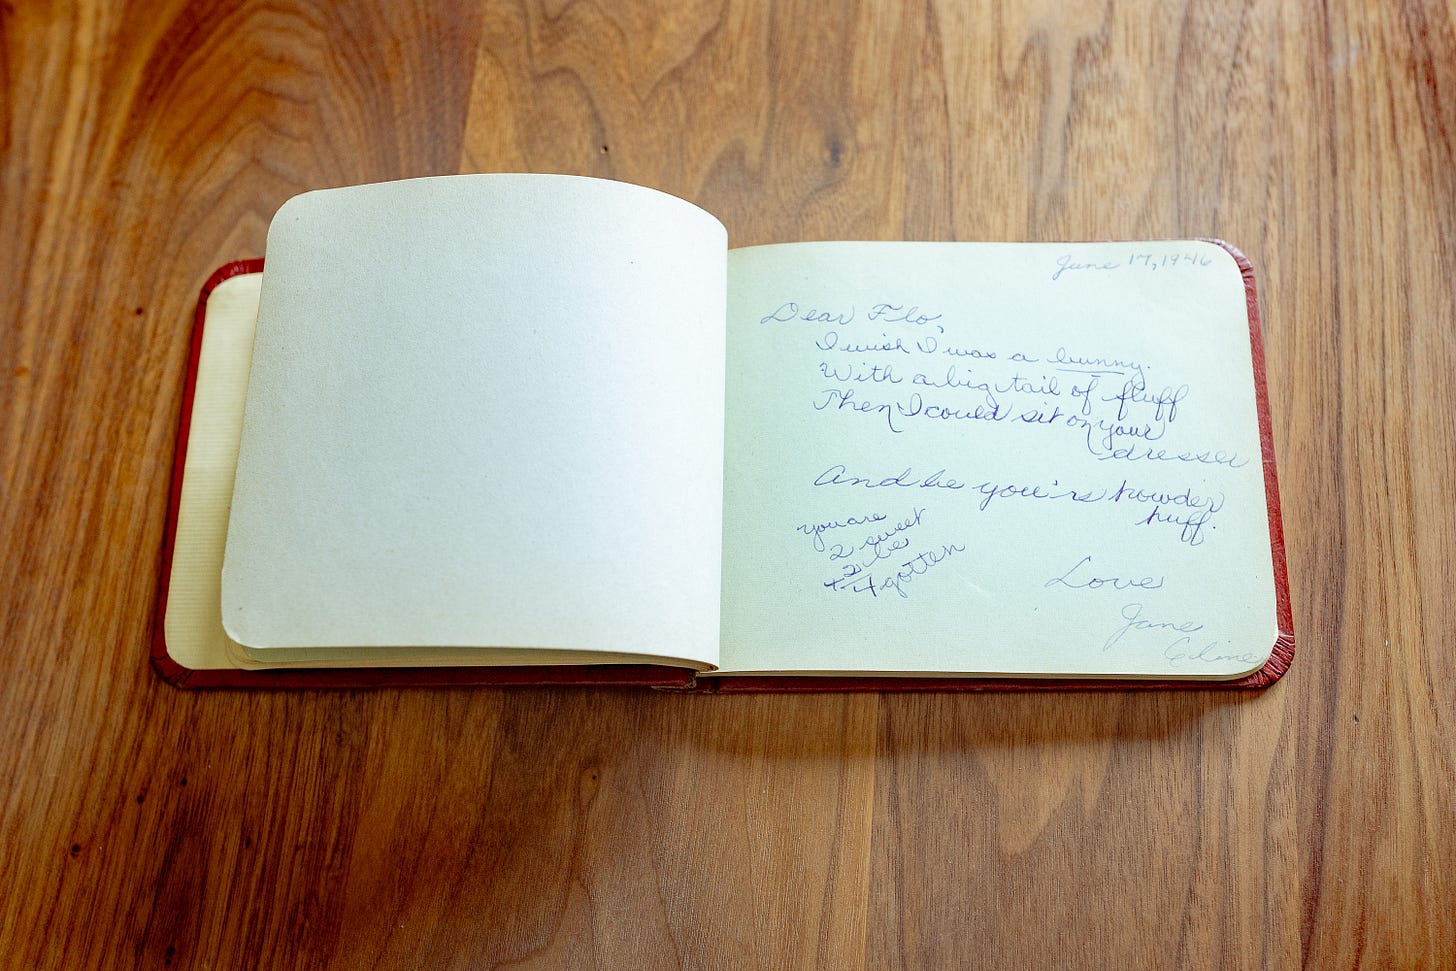 June 17, 1946
Dear Flo,
I wish I was a bunny.
With a big tail of fluff
Then I could sit on your
dresser
And be you're powder
puff.
you are
2 sweet
2 be
+ 4 gotten
Love
Jane